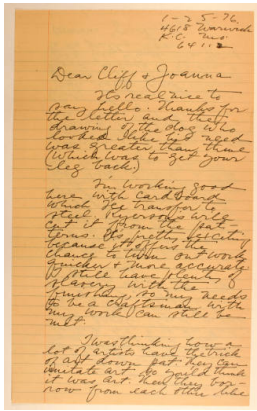 1-25-76
4618 Warwick
K.C. Mo
64112
Dear Cliff & Joanna
It's real nice to
say hello. Thanks for
the letter and the
drawing of the dog who
looked like his need
was greater than thine
(which was to get your
leg back.)
I'm working good
here with cardboard
which I transfer to
steel. Ryersons will
cut it from the pat-
terns. It's pretty exciting
because it offers the
chance to turn out work
quicker & more accurate
I still have plenty of
slavery with the
finishing so my needs
to be a craftsman with
my work can still be
met.
I was thinking how a
lot of artists have the trick
of art down pat they can
imitate art. So you'd think
it was art. then they bor-
row from each other like